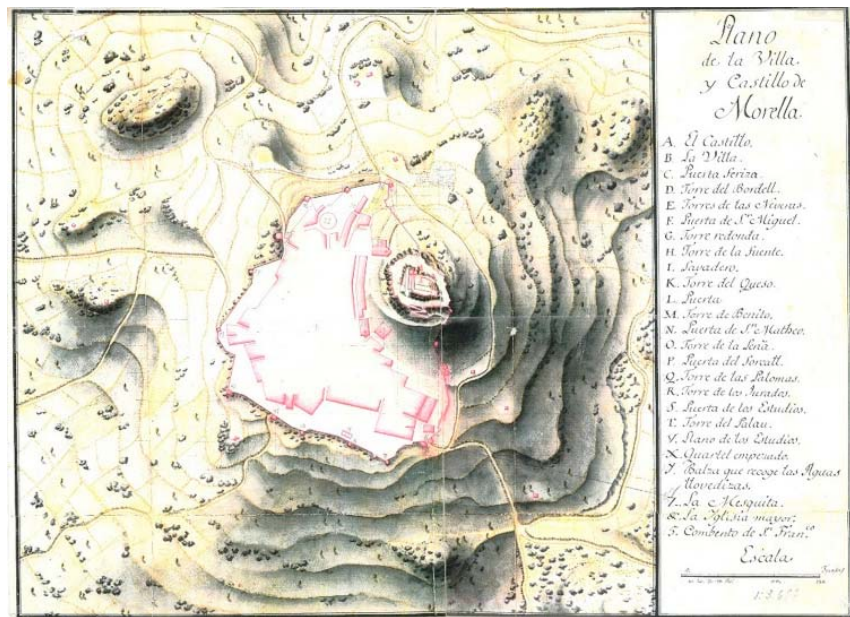 Plano
de la Villa
y Castillo de
Morella.
A. El Castillo.
B. La Villa.
C. Puerta Feriza.
D. Torre del Bordell.
E. Torres de las Neveras.
F. Puerta de Sn Miguel.
G. Torre redonda.
H. Torre de la Fuente.
I. Lavadero.
K. Torre del Queso.
L. Puerta
M. Torre de Benito.
N. Puerta de Sn Matheo.
O. Torre de la
P. Puerta del Forcall.
Q. Torre de las Palomas.
R. Torre de los Jurados.
S. Puerta de los Estudios.
T. Torre del Palau.
V. Plano de los Estudios.
X. Quartel empezado.
Y. Balza que recoge las Aguas
llovedizas.
7. La Mesquita.
&. La Iglesia mayor.
5. Combento de Sn Franco
Escala